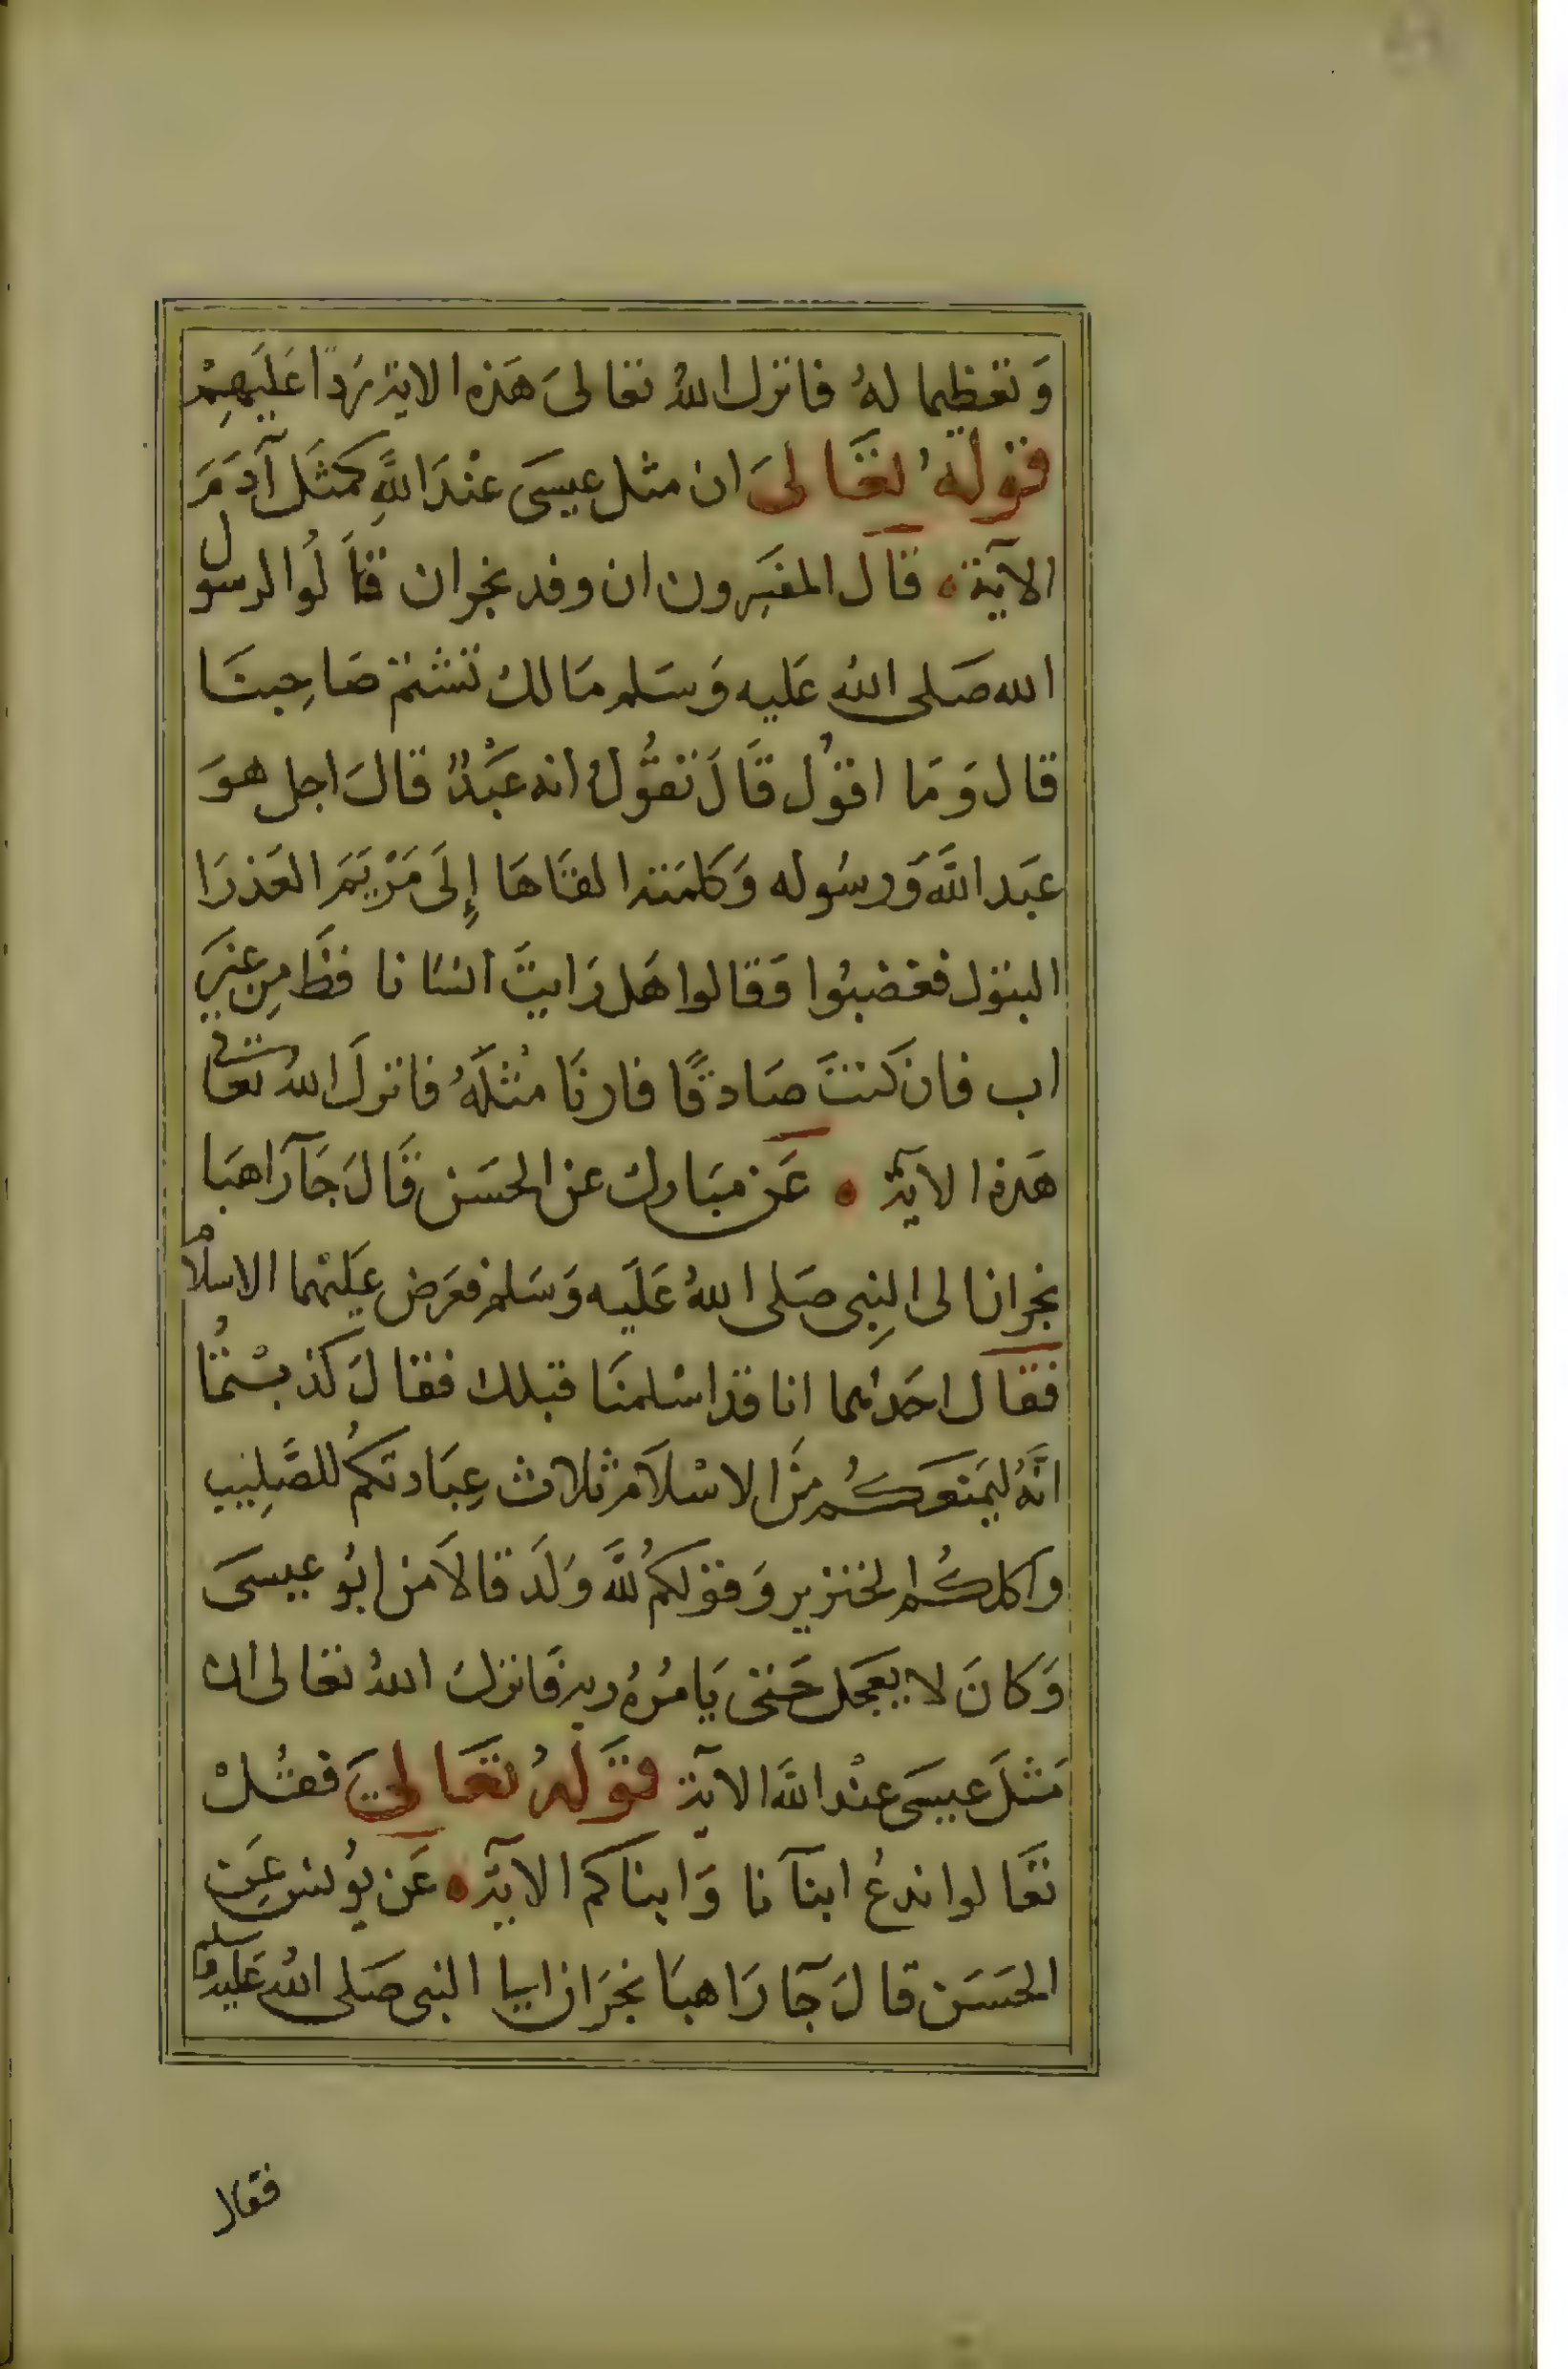 وَتعظيما لهُ فانزل اللهُ تعالىَ هَذه الاية رَدًّا عَليَهِمْ
قولهُ تعَالىَ ان مثل عيسَى عنْدَ اللَّهِ كمثَل آدَمَ
الآية ه قال المفسِرون ان وفد نجران قاَلُوا لرسول
الله صَلى اللهُ عَليه وَسَلم مَالك تشتم صَاحِبنَا
قال وَمَا اقوُل قَالَ تقوُلُ انه عَبْدٌ قالَ اجل هوَ
عَبد اللَّه وَرسُوله وَكلمَته القاهَا إِلَى مَرْيَمَ العَذرَا
البتول فغضبُوا وَقالوا هَل رَايتَ انسَانا قطَّ مِن غيَرِ
اب فان كنتَ صَادقًا فارنَا مثْلَهُ فانزلَ اللهُ تعالى
هَذه الآية ه عَن مبَارك عن الحسَن قَالَ جَآ رَاهبَا
نجران الى النِبى صَلى اللهُ عَلَيه وَسَلم فعَرَض عَليْهما الاسلامْ
فقال احَدهُما انا قد اسْلمنَا قبلك فقالَ كذبْتمُا
انَّهُ ليَمنعَكُم مِنَ الاسْلاَم ثلاث عِبَادتكمُ للصَّلِيبِ
واكلكُم الخنزير وَقولكمُ للَّه وَلَد قالاَ مَن ابُو عيسَى
وَكانَ لا يعَجل حَتى يَامُرهُ ربه فَانزلَ اللهُ تعالى ان
مَثلَ عيسَى عنْد اللَّه الآية قوَلهُ تعَالىَ فقُلْ
تعَالوا ندعُ ابنآنا وَابناكم الآية ه عَن يوُنس عَنِ
الحسَن قالَ جَآ رَاهبَا نجرَان اليا النبى صَلى اللهُ عَليه وسلم
فقال